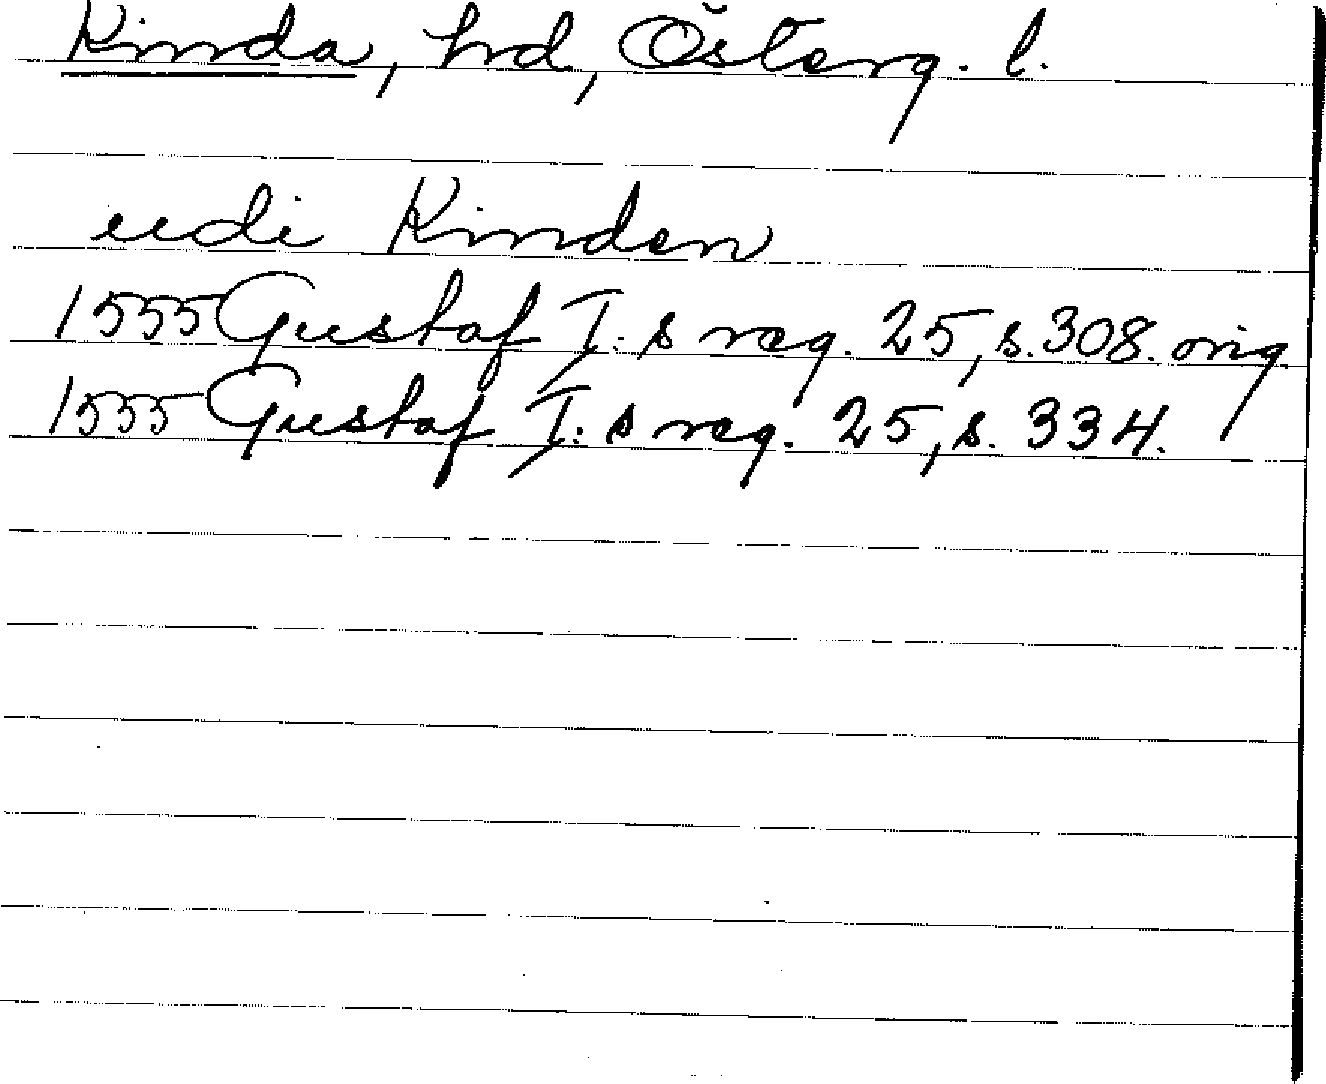 Kinda, hd, Österg. l.
udi Kinden
1555 Gustaf I:s reg. 25, s. 308. orig
1555 Gustaf I:s reg. 25, s. 334.